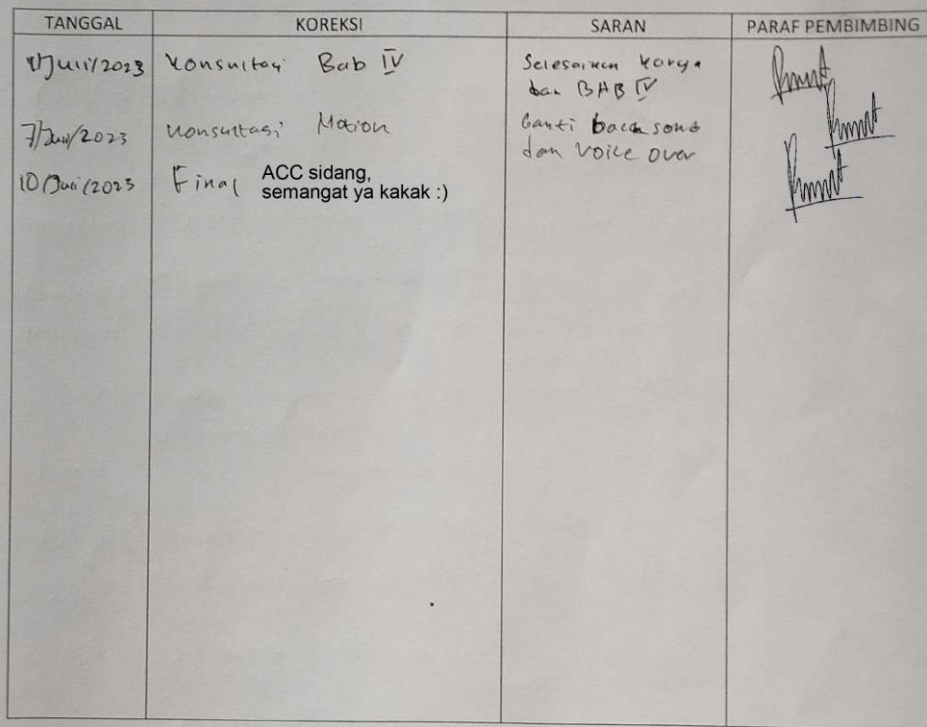 TANGGAL KOREKSI SARAN PARAF PEMBIMBING
Juli/2023 Konsultasi Bab IV Selesaikan Karya
dan BAB IV
7/Juli/2023 Konsultasi Motion Ganti backsond
dan Voice over
10/Juli/2023 Final ACC sidang,
semangat ya kakak :)